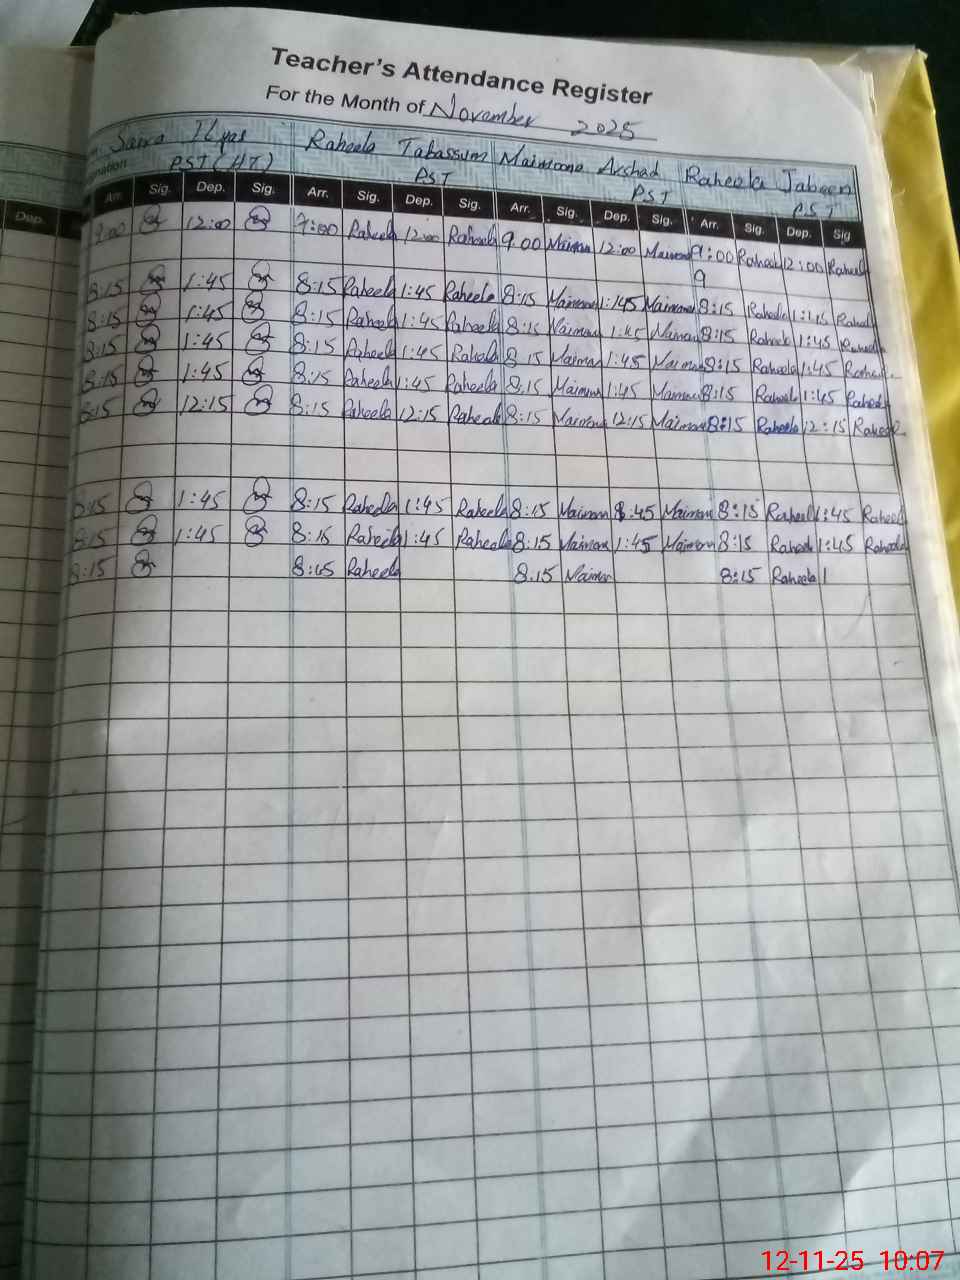 Teacher's Attendance Register
For the Month of November 2025
Saira Ilyas Raheela Tabassum Maimoona Arshad Raheela Jabeen
PST (HT) PST PST PST
Dep. Arr. Sig. Dep. Sig. Arr. Sig. Dep. Sig. Arr. Sig. Dep. Sig. Arr. Sig. Dep. Sig
9:00 12:00 9:00 Raheela 12:00 Raheela 9.00 Maimon 12:00 Maimona 9:00 Raheel 12:00 Raheel
9
8:15 1:45 8:15 Raheela 1:45 Raheela 8:15 Maimona 1:45 Maimona 8:15 Raheela 1:45 Raheel
8:15 1:45 8:15 Raheela 1:45 Raheela 8:15 Maimon 1:45 Maimon 8:15 Raheela 1:45 Raheela
8:15 1:45 8:15 Raheela 1:45 Raheela 8:15 Maimon 1:45 Maimona 8:15 Raheela 1:45 Raheela
8:15 1:45 8:15 Raheela 1:45 Raheela 8:15 Maimon 1:45 Maimona 8:15 Raheela 1:45 Raheela
8:15 12:15 8:15 Raheela 12:15 Raheela 8:15 Maimona 12:15 Maimona 8:15 Raheela 12:15 Raheela
8:15 1:45 8:15 Raheela 1:45 Raheela 8:15 Maimon 8:45 Maimon 8:15 Raheel 1:45 Raheel
8:15 1:45 8:15 Raheela 1:45 Raheela 8:15 Maimon 1:45 Maimon 8:15 Raheela 1:45 Raheela
8:15 8:15 Raheela 8.15 Maimon 8:15 Raheela 1
12-11-25 10:07